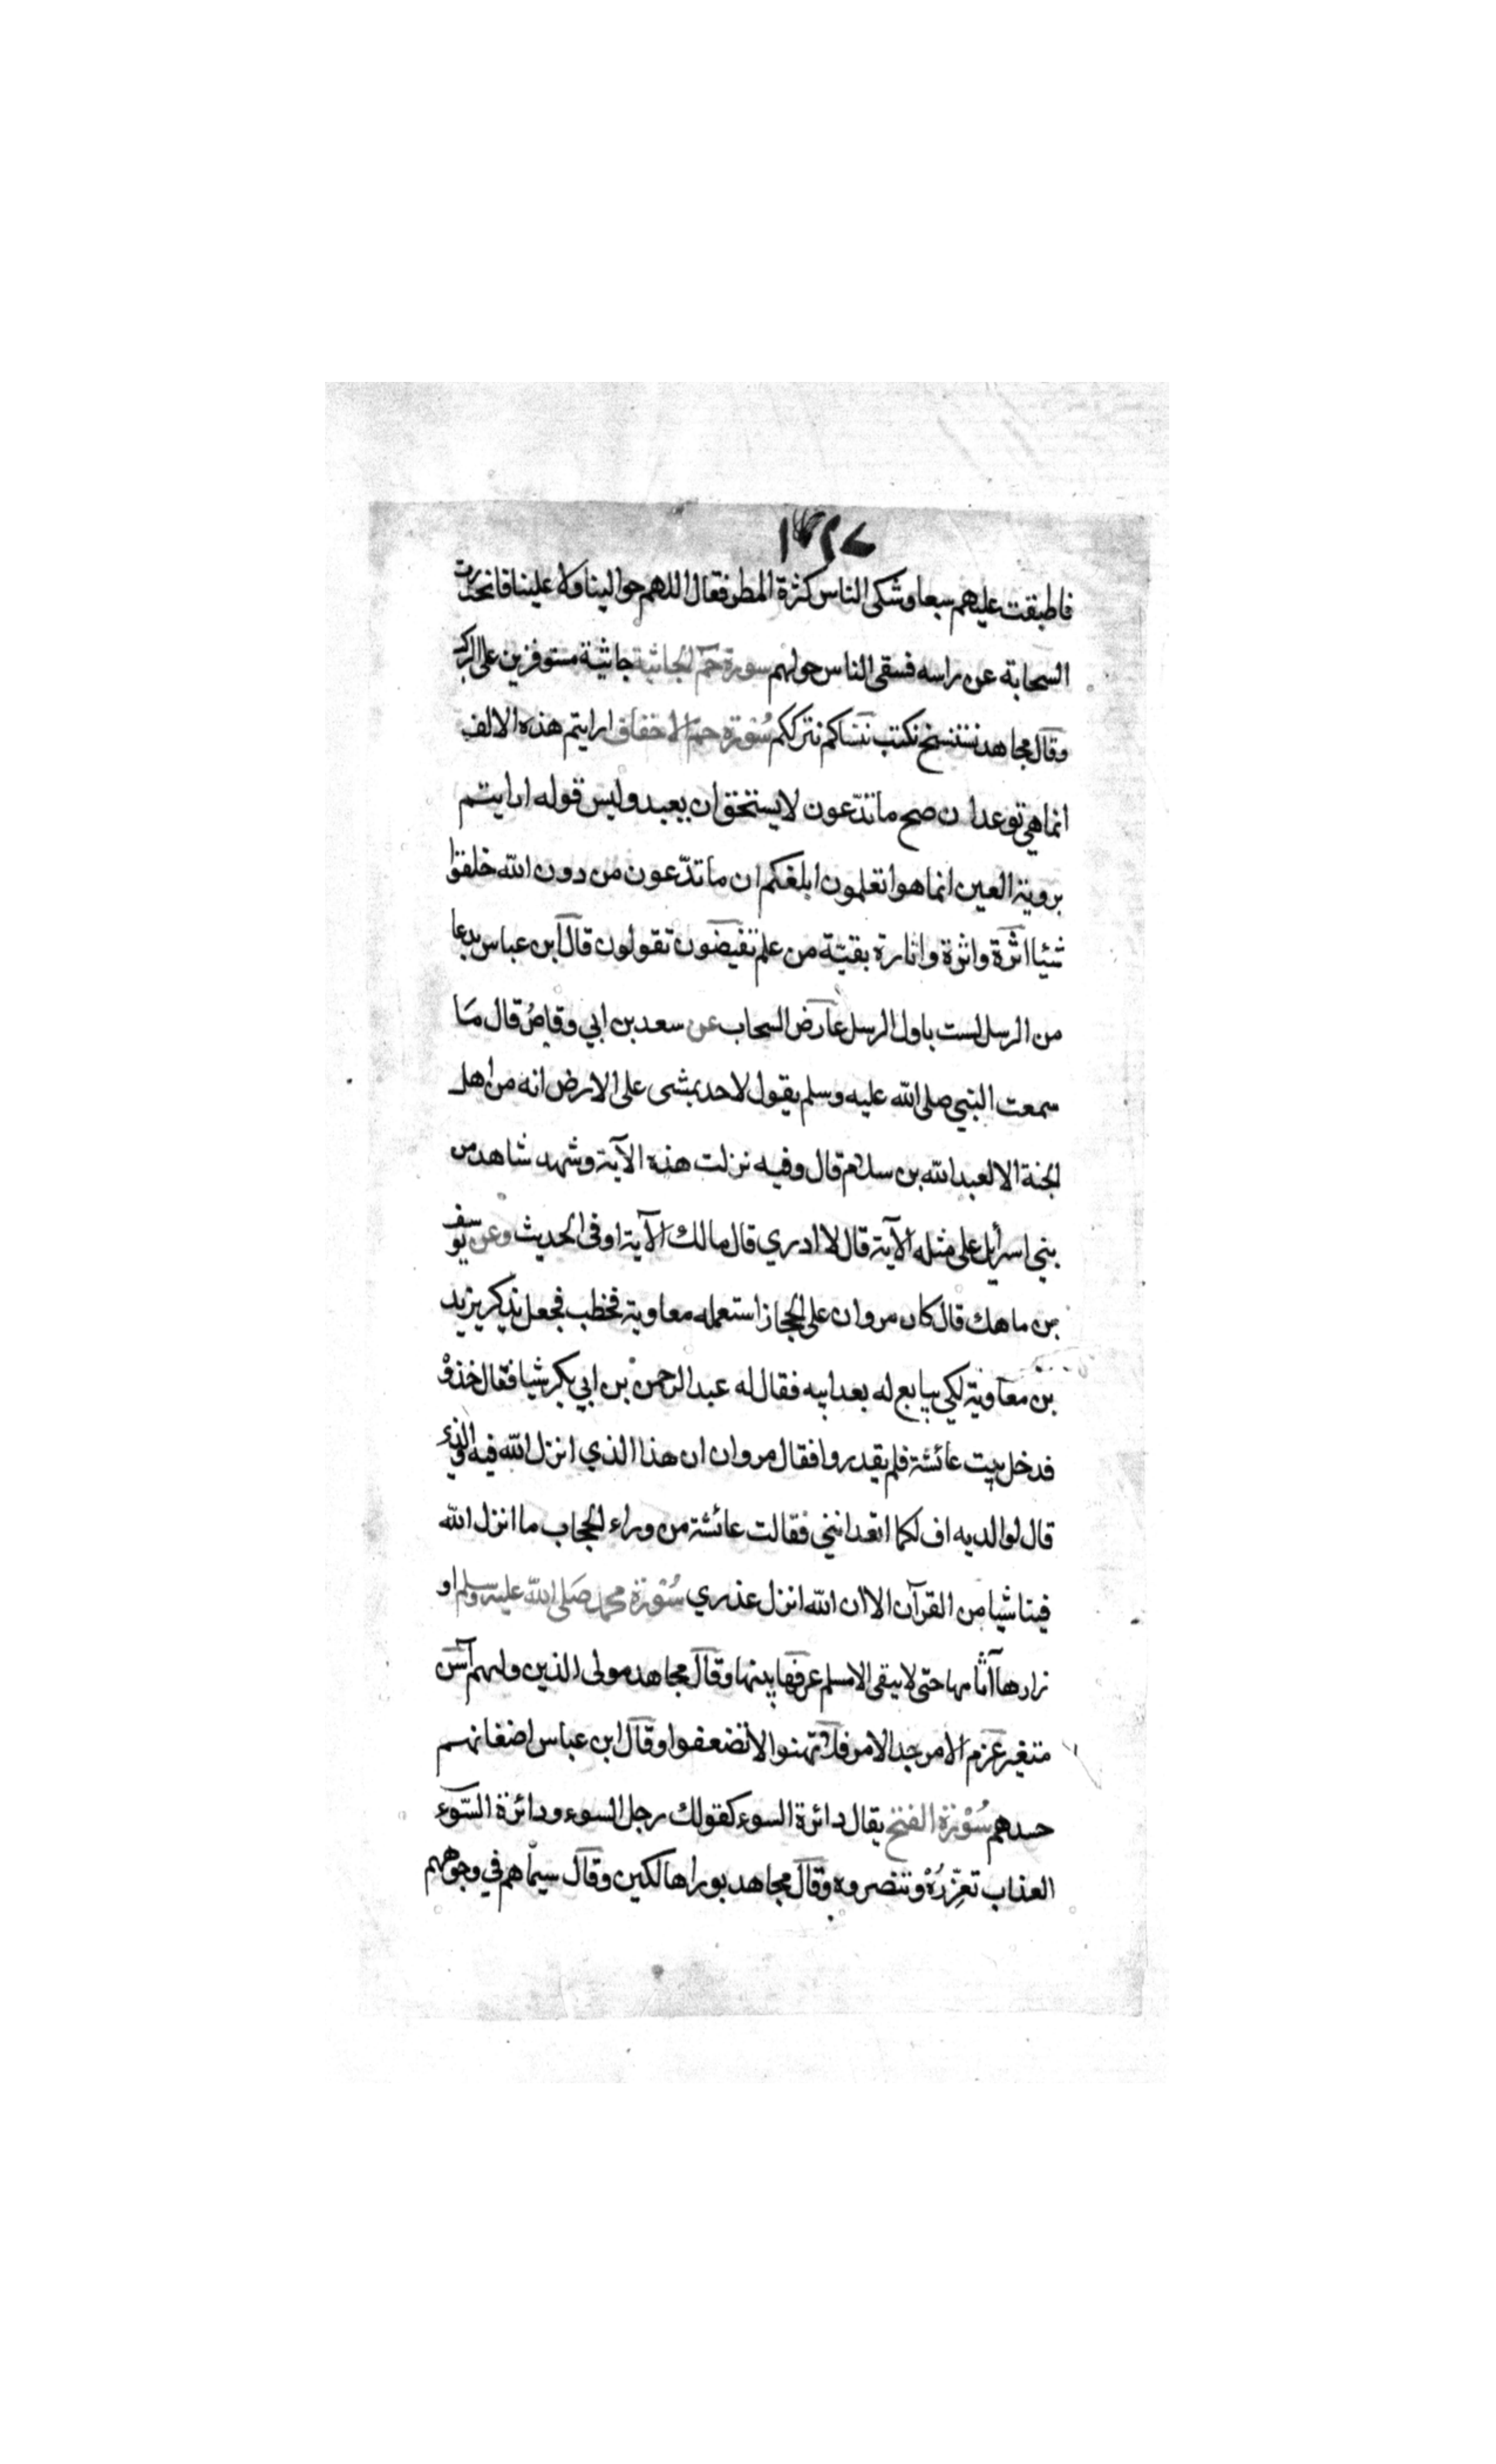 فاطبقت عليهم سبعا وشكى الناس كثرة المطر فقال اللهم حوالينا ولا علينا فانحدرت
السحابة عن راسه فسقى الناس حولهم سورة حم الجاثية جاثية مستوفزين على الركب
وقال مجاهد نستنسخ نكتب ننساكم نترككم سورة حم الاحقاف ارايتم هذه الالف
انما هي توعد ان صح ما تدّعون لا يستحق ان يعبد وليس قوله ارايتم
بروية العين انما هو اتعلمون ابلغكم ان ما تدّعون من دون الله خلقوا
شيئا اثرة واثرة واثارة بقيّة من علم تفيضون تقولون قال ابن عباس بدعا
من الرسل لست باول الرسل عارض السحاب عن سعد بن ابي وقاص قال ما
سمعت النبي صلى الله عليه وسلم يقول لاحد يمشى على الارض انه من اهل
الجنة الا لعبد الله بن سلام قال وفيه نزلت هذه الآية وشهد شاهد من
بني اسرأيل على مثله الآية قال لا ادري قال مالك الآية او في الحديث وعن يوسف
بن ماهك قال كان مروان على الحجاز استعمله معاوية فخطب فجعل يذكر يزيد
بن معاوية لكي يبايع له بعد ابيه فقال له عبد الرحمن بن ابي بكر شيا فقال خذوه
فدخل بيت عائشة فلم يقدروا فقال مروان ان هذا الذي انزل الله فيه والذي
قال لوالديه اف لكما اتعدانني فقالت عائشة من وراء الحجاب ما انزل الله
فينا شيا من القرآن الا ان الله انزل عذري سورة محمد صلى الله عليه وسلم او
زارها آثامها حتى لا يبقى الا مسلم عرفها بينها وقال مجاهد مولى الذين وليهم آسن
متغير عزم الامر جد الامر فلا تهنوا لا تضعفوا وقال ابن عباس اضغانهم
حسدهم سورة الفتح يقال دائرة السوء كقولك رجل السوء ودائرة السّوء
العذاب تعزّرُهْ وتنصروه وقال مجاهد بورا هالكين وقال سيماهم في وجوههم